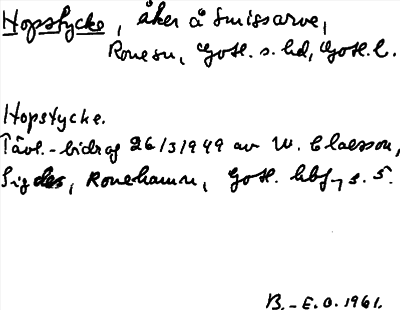 Hopstycke, åker å Smissarve,
Rone sn, Gotl. s. hd, Gotl. l.
Hopstycke.
Tävl.-bidrag 26/3 1949 av W. Claesson,
Sigdes, Ronehamn, Gotl. hbf, s. 5.
B.-E. O. 1961.